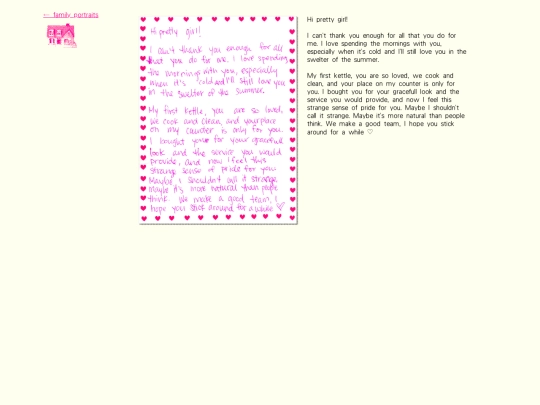 <- family portraits
Hi pretty girl!
I can't thank you enough for all
that you do for me. I love spending
the mornings with you, especially
when it's cold and I'll still love you
in the swelter of the summer.
My first kettle, you are so loved,
we cook and clean, and your place
on my counter is only for you.
I bought you for your graceful
look and the service you would
provide, and now I feel this
strange sense of pride for you.
Maybe I shouldn't call it strange.
Maybe it's more natural than people
think. We make a good team, I
hope you stick around for a while ♡
Hi pretty girl!
I can't thank you enough for all that you do for
me. I love spending the mornings with you,
especially when it's cold and I'll still love you in the
swelter of the summer.
My first kettle, you are so loved, we cook and
clean, and your place on my counter is only for
you. I bought you for your graceful look and the
service you would provide, and now I feel this
strange sense of pride for you. Maybe I shouldn't
call it strange. Maybe it's more natural than people
think. We make a good team, I hope you stick
around for a while ♡